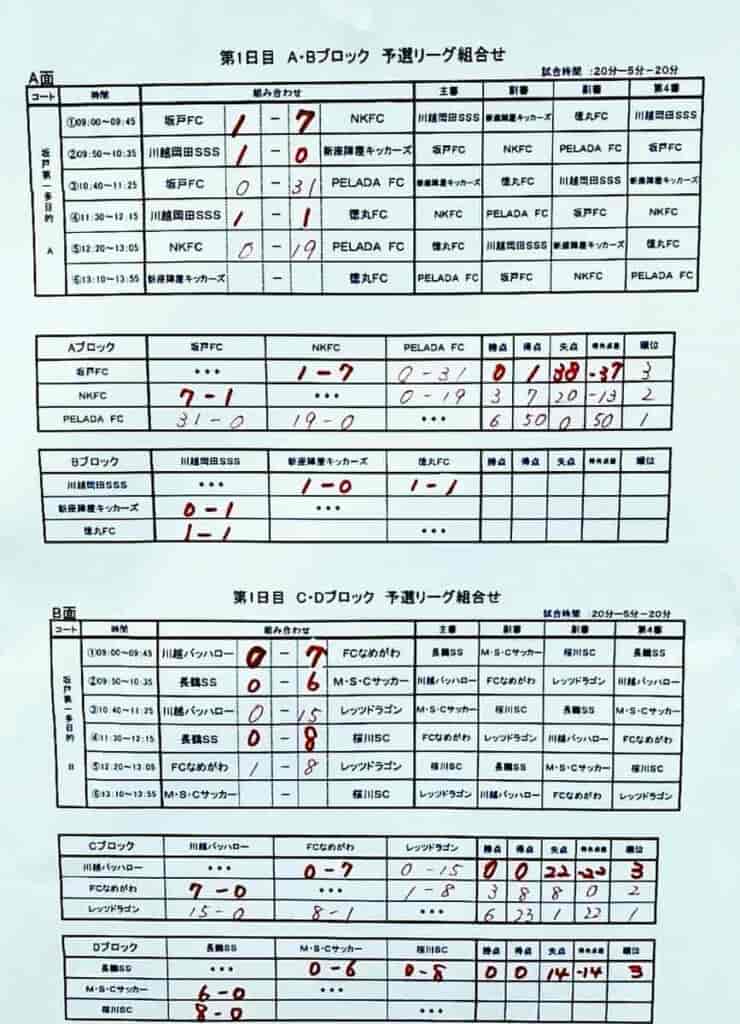 第1日目 A・Bブロック 予選リーグ組合せ
A面 試合時間 :20分ー5分ー20分
コート 時間 組み合わせ 主審 副審 副審 第4審
坂戸第一多目的 A
①09:00～09:45 坂戸FC 1 - 7 NKFC 川越岡田SSS 新座陣屋キッカーズ 徳丸FC 川越岡田SSS
②09:50～10:35 川越岡田SSS 1 - 0 新座陣屋キッカーズ 坂戸FC NKFC PELADA FC 坂戸FC
③10:40～11:25 坂戸FC 0 - 31 PELADA FC 新座陣屋キッカーズ 徳丸FC 川越岡田SSS 新座陣屋キッカーズ
④11:30～12:15 川越岡田SSS 1 - 1 徳丸FC NKFC PELADA FC 坂戸FC NKFC
⑤12:20～13:05 NKFC 0 - 19 PELADA FC 徳丸FC 川越岡田SSS 新座陣屋キッカーズ 徳丸FC
⑥13:10～13:55 新座陣屋キッカーズ - 徳丸FC PELADA FC 坂戸FC NKFC PELADA FC
Aブロック 坂戸FC NKFC PELADA FC 勝点 得点 失点 得失点差 順位
坂戸FC ・・・ 1-7 0-31 0 1 38 -37 3
NKFC 7-1 ・・・ 0-19 3 7 20 -13 2
PELADA FC 31-0 19-0 ・・・ 6 50 0 50 1
Bブロック 川越岡田SSS 新座陣屋キッカーズ 徳丸FC 勝点 得点 失点 得失点差 順位
川越岡田SSS ・・・ 1-0 1-1
新座陣屋キッカーズ 0-1 ・・・
徳丸FC 1-1 ・・・
第1日目 C・Dブロック 予選リーグ組合せ
B面 試合時間 :20分ー5分ー20分
コート 時間 組み合わせ 主審 副審 副審 第4審
坂戸第一多目的 B
①09:00～09:45 川越バッハロー 0 - 7 FCなめがわ 長鶴SS M・S・Cサッカー 桜川SC 長鶴SS
②09:50～10:35 長鶴SS 0 - 6 M・S・Cサッカー 川越バッハロー FCなめがわ レッツドラゴン 川越バッハロー
③10:40～11:25 川越バッハロー 0 - 15 レッツドラゴン M・S・Cサッカー 桜川SC 長鶴SS M・S・Cサッカー
④11:30～12:15 長鶴SS 0 - 8 桜川SC FCなめがわ レッツドラゴン 川越バッハロー FCなめがわ
⑤12:20～13:05 FCなめがわ 1 - 8 レッツドラゴン 桜川SC 長鶴SS M・S・Cサッカー 桜川SC
⑥13:10～13:55 M・S・Cサッカー - 桜川SC レッツドラゴン 川越バッハロー FCなめがわ レッツドラゴン
Cブロック 川越バッハロー FCなめがわ レッツドラゴン 勝点 得点 失点 得失点差 順位
川越バッハロー ・・・ 0-7 0-15 0 0 22 -22 3
FCなめがわ 7-0 ・・・ 1-8 3 8 8 0 2
レッツドラゴン 15-0 8-1 ・・・ 6 23 1 22 1
Dブロック 長鶴SS M・S・Cサッカー 桜川SC 勝点 得点 失点 得失点差 順位
長鶴SS ・・・ 0-6 0-8 0 0 14 -14 3
M・S・Cサッカー 6-0 ・・・
桜川SC 8-0 ・・・